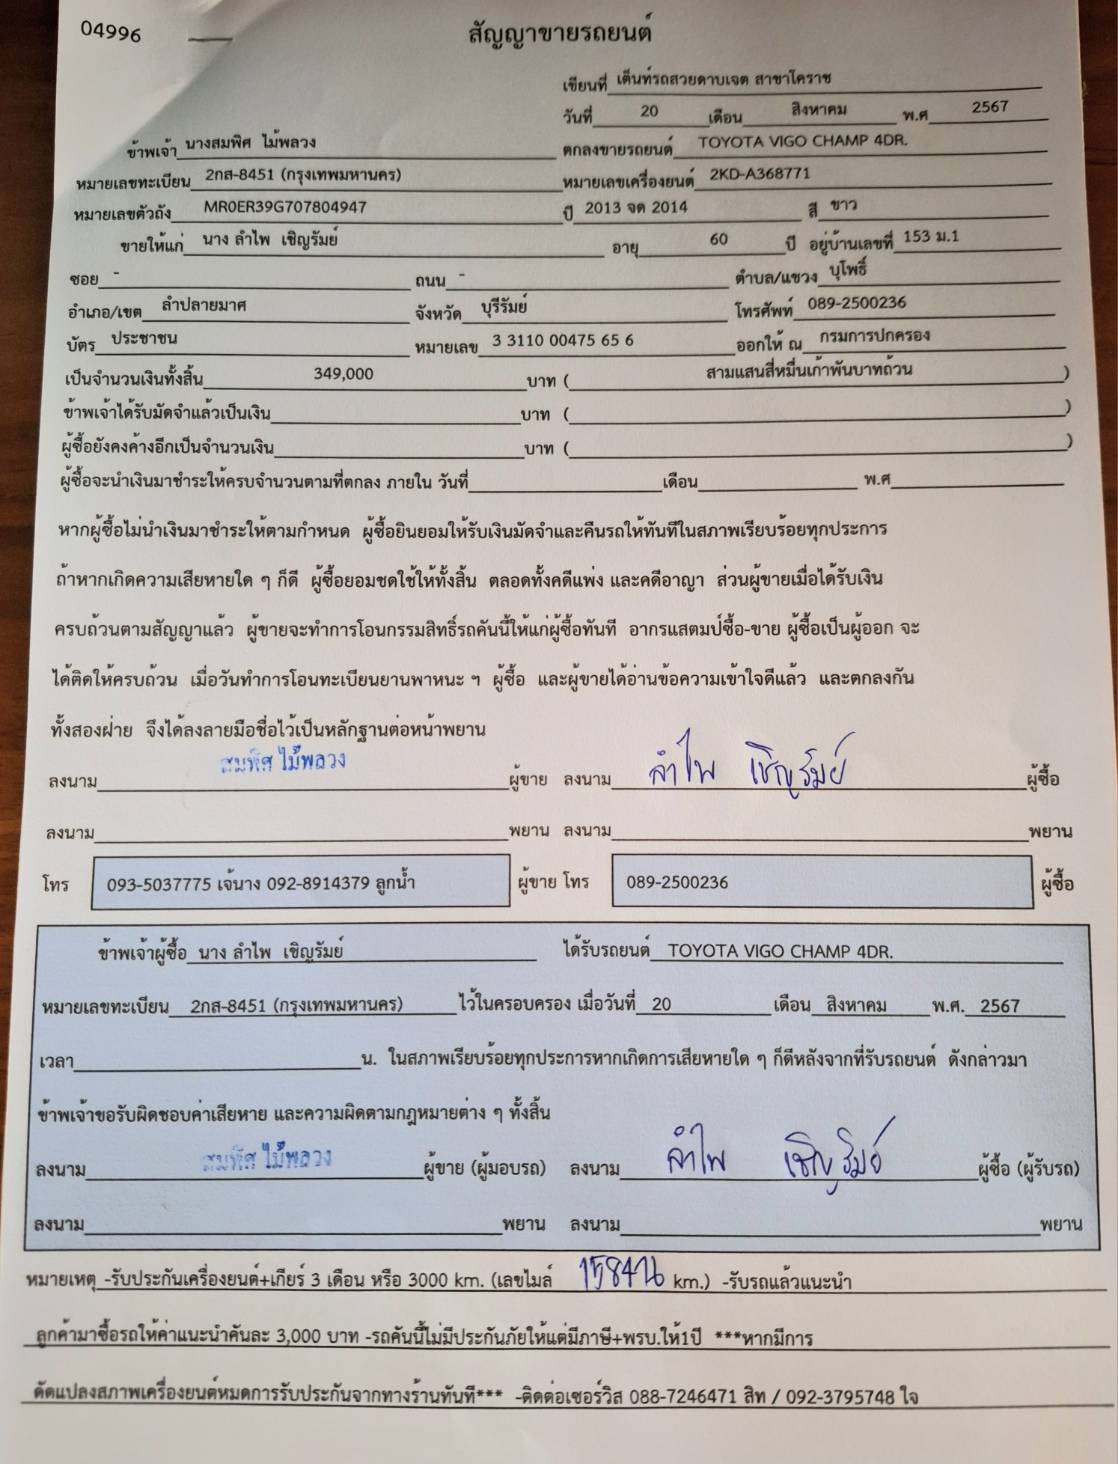 04996
สัญญาขายรถยนต์
เขียนที่ เต็นท์รถสวยดาบเจต สาขาโคราช
วันที่ 20 เดือน สิงหาคม พ.ศ 2567
ข้าพเจ้า นางสมพิศ ไม้พลวง ตกลงขายรถยนต์ TOYOTA VIGO CHAMP 4DR.
หมายเลขทะเบียน 2กส-8451 (กรุงเทพมหานคร) หมายเลขเครื่องยนต์ 2KD-A368771
หมายเลขตัวถัง MR0ER39G707804947 ปี 2013 จด 2014 สี ขาว
ขายให้แก่ นาง ลำไพ เชิญรัมย์ อายุ 60 ปี อยู่บ้านเลขที่ 153 ม.1
ซอย - ถนน - ตำบล/แขวง บุโพธิ์
อำเภอ/เขต ลำปลายมาศ จังหวัด บุรีรัมย์ โทรศัพท์ 089-2500236
บัตร ประชาชน หมายเลข 3 3110 00475 65 6 ออกให้ ณ กรมการปกครอง
เป็นจำนวนเงินทั้งสิ้น 349,000 บาท ( สามแสนสี่หมื่นเก้าพันบาทถ้วน )
ข้าพเจ้าได้รับมัดจำแล้วเป็นเงิน บาท ( )
ผู้ซื้อยังคงค้างอีกเป็นจำนวนเงิน บาท ( )
ผู้ซื้อจะนำเงินมาชำระให้ครบจำนวนตามที่ตกลง ภายใน วันที่ เดือน พ.ศ
หากผู้ซื้อไม่นำเงินมาชำระให้ตามกำหนด ผู้ซื้อยินยอมให้รับเงินมัดจำและคืนรถให้ทันทีในสภาพเรียบร้อยทุกประการ
ถ้าหากเกิดความเสียหายใด ๆ ก็ดี ผู้ซื้อยอมชดใช้ให้ทั้งสิ้น ตลอดทั้งคดีแพ่ง และคดีอาญา ส่วนผู้ขายเมื่อได้รับเงิน
ครบถ้วนตามสัญญาแล้ว ผู้ขายจะทำการโอนกรรมสิทธิ์รถคันนี้ให้แก่ผู้ซื้อทันที อากรแสตมป์ซื้อ-ขาย ผู้ซื้อเป็นผู้ออก จะ
ได้ติดให้ครบถ้วน เมื่อวันทำการโอนทะเบียนยานพาหนะ ฯ ผู้ซื้อ และผู้ขายได้อ่านข้อความเข้าใจดีแล้ว และตกลงกัน
ทั้งสองฝ่าย จึงได้ลงลายมือชื่อไว้เป็นหลักฐานต่อหน้าพยาน
ลงนาม สมพิศ ไม้พลวง ผู้ขาย ลงนาม ลำไพ เชิญรัมย์ ผู้ซื้อ
ลงนาม พยาน ลงนาม พยาน
โทร 093-5037775 เจ้นาง 092-8914379 ลูกน้ำ ผู้ขาย โทร 089-2500236 ผู้ซื้อ
ข้าพเจ้าผู้ซื้อ นาง ลำไพ เชิญรัมย์ ได้รับรถยนต์ TOYOTA VIGO CHAMP 4DR.
หมายเลขทะเบียน 2กส-8451 (กรุงเทพมหานคร) ไว้ในครอบครอง เมื่อวันที่ 20 เดือน สิงหาคม พ.ศ. 2567
เวลา น. ในสภาพเรียบร้อยทุกประการหากเกิดการเสียหายใด ๆ ก็ดีหลังจากที่รับรถยนต์ ดังกล่าวมา
ข้าพเจ้าขอรับผิดชอบค่าเสียหาย และความผิดตามกฎหมายต่าง ๆ ทั้งสิ้น
ลงนาม สมพิศ ไม้พลวง ผู้ขาย (ผู้มอบรถ) ลงนาม ลำไพ เชิญรัมย์ ผู้ซื้อ (ผู้รับรถ)
ลงนาม พยาน ลงนาม พยาน
หมายเหตุ -รับประกันเครื่องยนต์+เกียร์ 3 เดือน หรือ 3000 km. (เลขไมล์ km.) -รับรถแล้วแนะนำ
ลูกค้ามาซื้อรถให้ค่าแนะนำคันละ 3,000 บาท -รถคันนี้ไม่มีประกันภัยให้แต่มีภาษี+พรบ.ให้1ปี ***หากมีการ
ดัดแปลงสภาพเครื่องยนต์หมดการรับประกันจากทางร้านทันที*** -ติดต่อเซอร์วิส 088-7246471 สิท / 092-3795748 ใจ